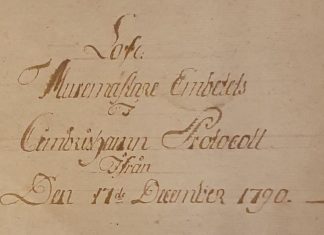 Lofl:
Muremästare Embetets
I
Cimbrishamn Protocoll
Ifrån
Den 17de December 1790.